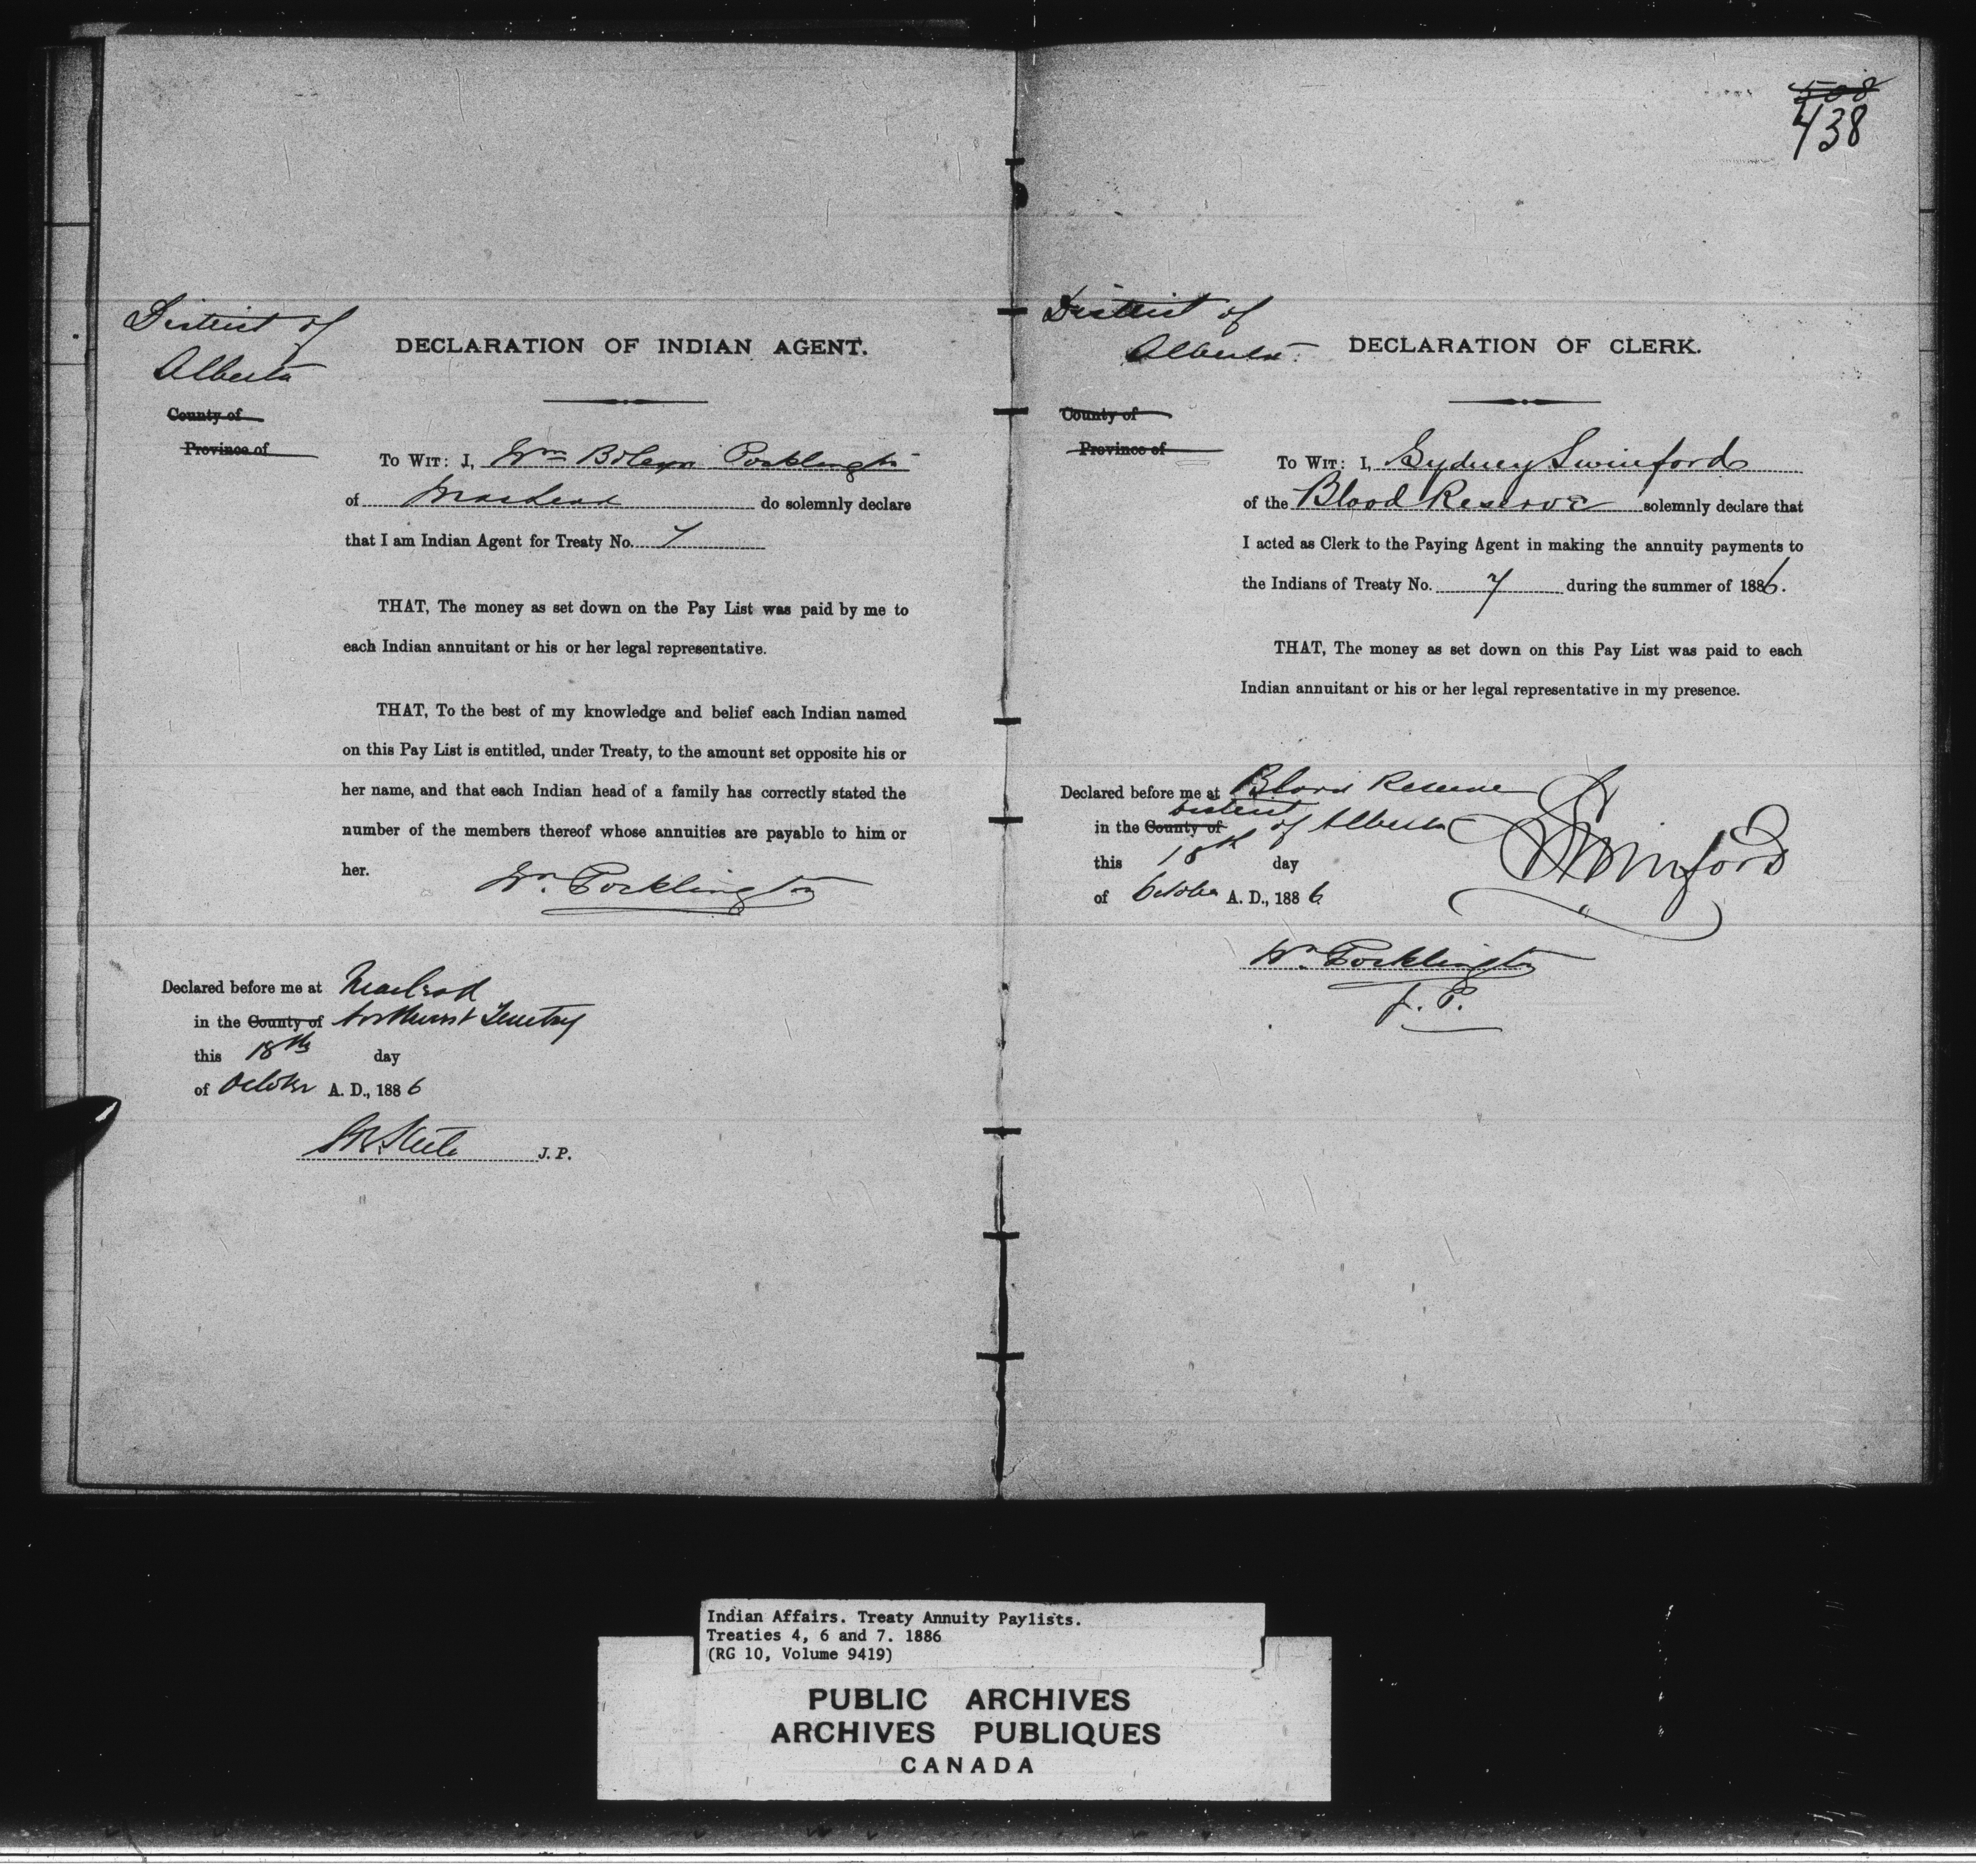 District of
Alberta
DECLARATION OF INDIAN AGENT.
County of
Province of
To Wit: I, Wm Boleyn Pocklington
of MacLeod do solemnly declare
that I am Indian Agent for Treaty No. 7
THAT, The money as set down on the Pay List was paid by me to
each Indian annuitant or his or her legal representative.
THAT, To the best of my knowledge and belief each Indian named
on this Pay List is entitled, under Treaty, to the amount set opposite his or
her name, and that each Indian head of a family has correctly stated the
number of the members thereof whose annuities are payable to him or
her.
Wm. Pocklington
Declared before me at Macleod
in the County of Northwest Territory
this 18th day
of October A. D., 1886
J. P.
508
438
District of
Alberta.
DECLARATION OF CLERK.
County of
Province of
To Wit: I, Sydney Swinford
of the Blood Reserve solemnly declare that
I acted as Clerk to the Paying Agent in making the annuity payments to
the Indians of Treaty No. 7 during the summer of 1886.
THAT, The money as set down on this Pay List was paid to each
Indian annuitant or his or her legal representative in my presence.
Declared before me at Blood Reserve
in the County of District of Alberta
this 18th day
of October A. D., 1886
S Swinford
Wm. Pocklington
J. P.
Indian Affairs. Treaty Annuity Paylists.
Treaties 4, 6 and 7. 1886
(RG 10, Volume 9419)
PUBLIC ARCHIVES
ARCHIVES PUBLIQUES
CANADA